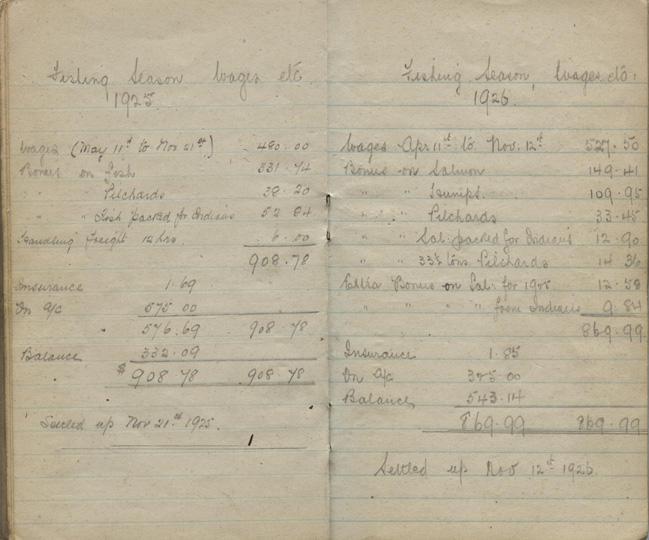 Fishing Season Wages etc
1925
Wages (May 11th to Nov 21st) 480.00
Bonus on Fish 331.74
" " Pilchards 38.20
" " Fish packed for Indians 52.84
Handling Freight 12 hrs. 6.00
908.78
Insurance 1.69
On a/c 575.00
576.69 908.78
Balance 332.09
$ 908.78 908.78
Settled up Nov 21st 1925.
Fishing Season, Wages etc.
1926.
Wages Apr 11th to Nov. 12th 527.50
Bonus on Salmon 149.41
" " Humps. 109.95
" " Pilchards 33.45
" " Sal. packed for Indians 12.90
" " tons Pilchards 14.36
Extra Bonus on Sal. for 12.58
" " " " from Indians 9.84
869.99
Insurance 1.85
On a/c 325.00
Balance 543.14
869.99 869.99
Settled up Nov 12th 1926.